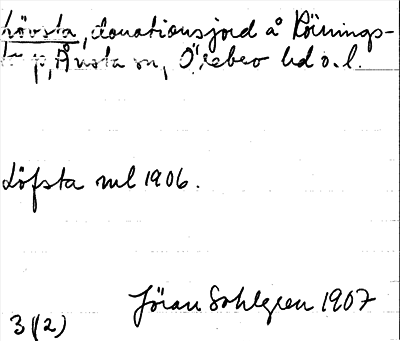 Lövsta, donationsjord å Rönnings-
p, Ånsta sn, Örebro hd o. l.
Löfsta ml 1906.
Jöran Sahlgren 1907
3 (2)